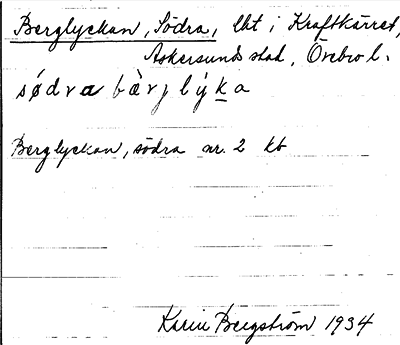 Berglyckan, Södra, lht i Kraftkärret,
Askersunds stad, Örebro l.
södra bàrjlýka
Berglyckan, södra nr. 2 kb
Karin Bergström 1934